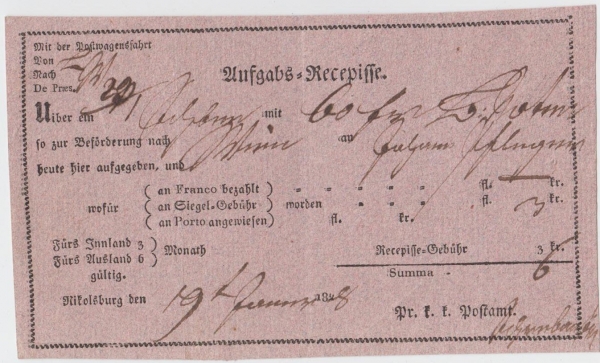 Mit der Postwagensfahrt
Von
Nach
De Præs.
Aufgabs-Recepisse.
Uiber ein Schreiben mit 60 fr
so zur Beförderung nach Wien an Johann
heute hier aufgegeben, und
wofür
(an Franco bezahlt) " " " " " fl. — kr.
(an Siegel-Gebühr) worden " " " " fl. 3
(an Porto angewiesen) fl. kr.
Fürs Innland 3
Fürs Ausland 6
} Monath
gültig.
Recepisse-Gebühr 3 kr.
Summa 6
Nikolsburg den 19t 1848
Pr. k. k. Postamt.